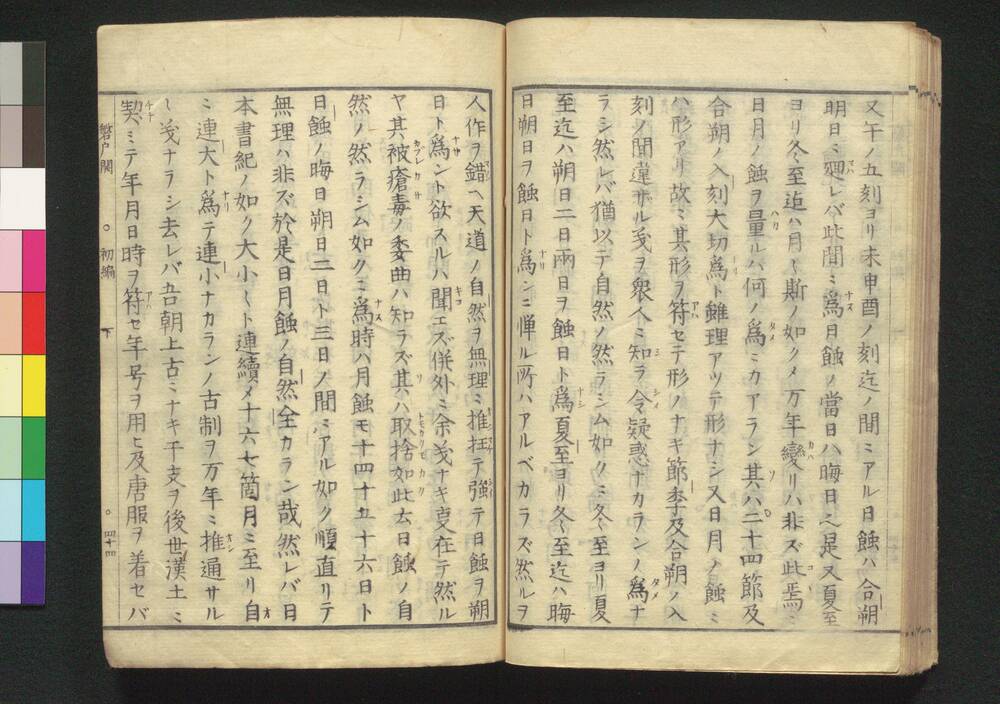 又午ノ五刻ヨリ未申酉ノ刻迄ノ間ミアル日蝕ハ合朔
明日ミ廻レバ此間ミ爲日蝕ノ當日ハ晦日之是又夏至
ヨリ冬至迄ハ月〻斯ノ如クメ万年變リハ非ズ此焉ミ
日月ノ蝕ヲ量ルハ何ノ爲ミカアラン其ハ二十四節及
合朔ノ入刻大切爲ト雖理アツテ形ナシ又日月ノ蝕ミ
ハ形アリ故ミ其形ヲ符セテ形ノナキ節季及合朔ノ入
刻ノ間違サル𫝆ヲ衆人ミ知ラ令疑惑ナカランノ爲ナ
ラシ然レバ猶以テ自然ノ然ラシム如クミ冬至ヨリ夏
至迄ハ朔日二日兩日ヲ蝕日ト爲夏至ヨリ冬至迄ハ晦
日朔日ヲ蝕日ト爲ンミ憚ル所ハアルベカラズ然ルヲ
人作ヲ錯ヘ天道ノ自然ヲ無理ミ推抂テ強テ日蝕ヲ朔
日ト爲ント欲スルハ聞エズ併外ミ余𫝆ナキ㕝在テ然ル
ヤ其被瘡毒ノ委曲ハ知ラズ其ハ取捨如此去日蝕ノ自
然ノ然ラシム如クミ爲時ハ月蝕モ十四十五十六日ト
日蝕ノ晦日朔日二日ト三日ノ間ミアル如ク順直リテ
無理ハ非ズ於是日月蝕ノ自然全カラン哉然レバ日
本書紀ノ如ク大小〻ト連續メ十六七箇月ミ至リ自
ミ連大ト爲テ連小ナカランノ古制ヲ万年ミ推通サル
〻𫝆ナラシ去レバ吾朝上古ミナキ干支ヲ後世漢土ミ
契ミテ年月日時ヲ符セ年号ヲ用ヒ及唐服ヲ着セバ
磐戸開 ○ 初編 下 ○ 四十四